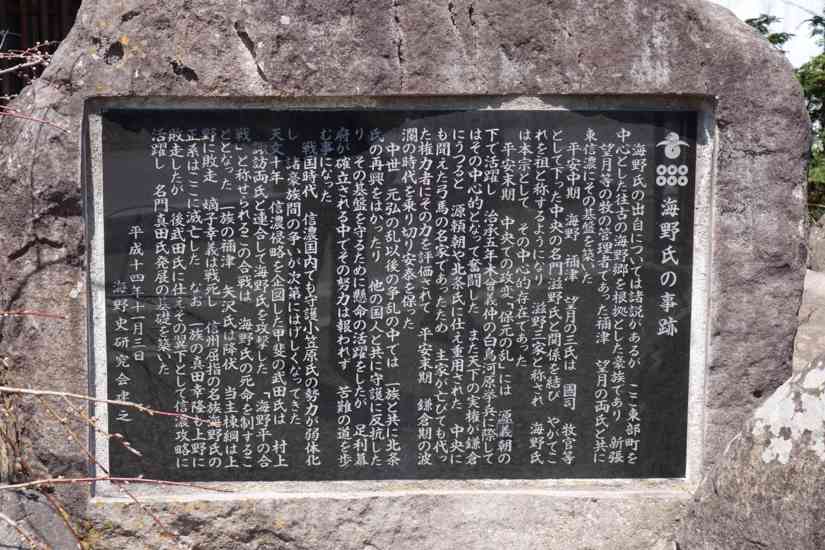 海野氏の事跡
海野氏の出自については諸説があるが　ここ東部町を
中心とした往古の海野郷を根拠とした豪族であり　新張
望月等の牧の管理者であった祢津　望月の両氏と共に
東信濃にその基盤を築いた
平安中期　海野　祢津　望月の三氏は　國司　牧官等
として下った中央の名門滋野氏と関係を結び　やがてこ
れを祖と称するようになり　滋野三家と称され　海野氏
は本宗として　その中心的存在であった
平安末期　中央での政変「保元の乱」には　源義朝の
下で活躍し　治承五年木曽義仲の白鳥河原挙兵に際して
はその中心的となって奮闘した　また天下の実権が鎌倉
にうつると　源頼朝や北条氏に仕え重用された　中央に
も聞えた弓馬の名家であったため　主家が亡びても代っ
た権力者にその力を評価されて　平安末期　鎌倉期の波
瀾の時代を乗り切り安泰を保った
中世　元弘の乱以後の争乱の中では　一族と共に北条
氏の再興をはかったり　他の国人と共に守護に反抗した
り　その基盤を守るために懸命の活躍をしたが　足利幕
府が確立される中でその努力は報われず　苦難の道を歩
む事になった
戦国時代　信濃国内でも守護小笠原氏の努力が弱体化
し　諸豪族間の争いが次第にはげしくなってきた
天文十年　信濃侵略を企図した甲斐の武田氏は　村上
諏訪両氏と連合して海野氏を攻撃した　「海野平の合
戦」と称せられるこの合戦は　海野氏の死命を制するこ
ととなった　一族の祢津　矢沢氏は降伏　当主棟綱は上
野に敗走　嫡子幸義は戦死し　信州屈指の名族海野氏の
正系はここに滅亡した　なお　一族の真田幸隆も上野に
敗走したが　後武田氏に仕えその翼下として信濃攻略に
活躍し　名門真田氏発展の基礎を築いた
平成十四年十一月三日
海野史研究会建之